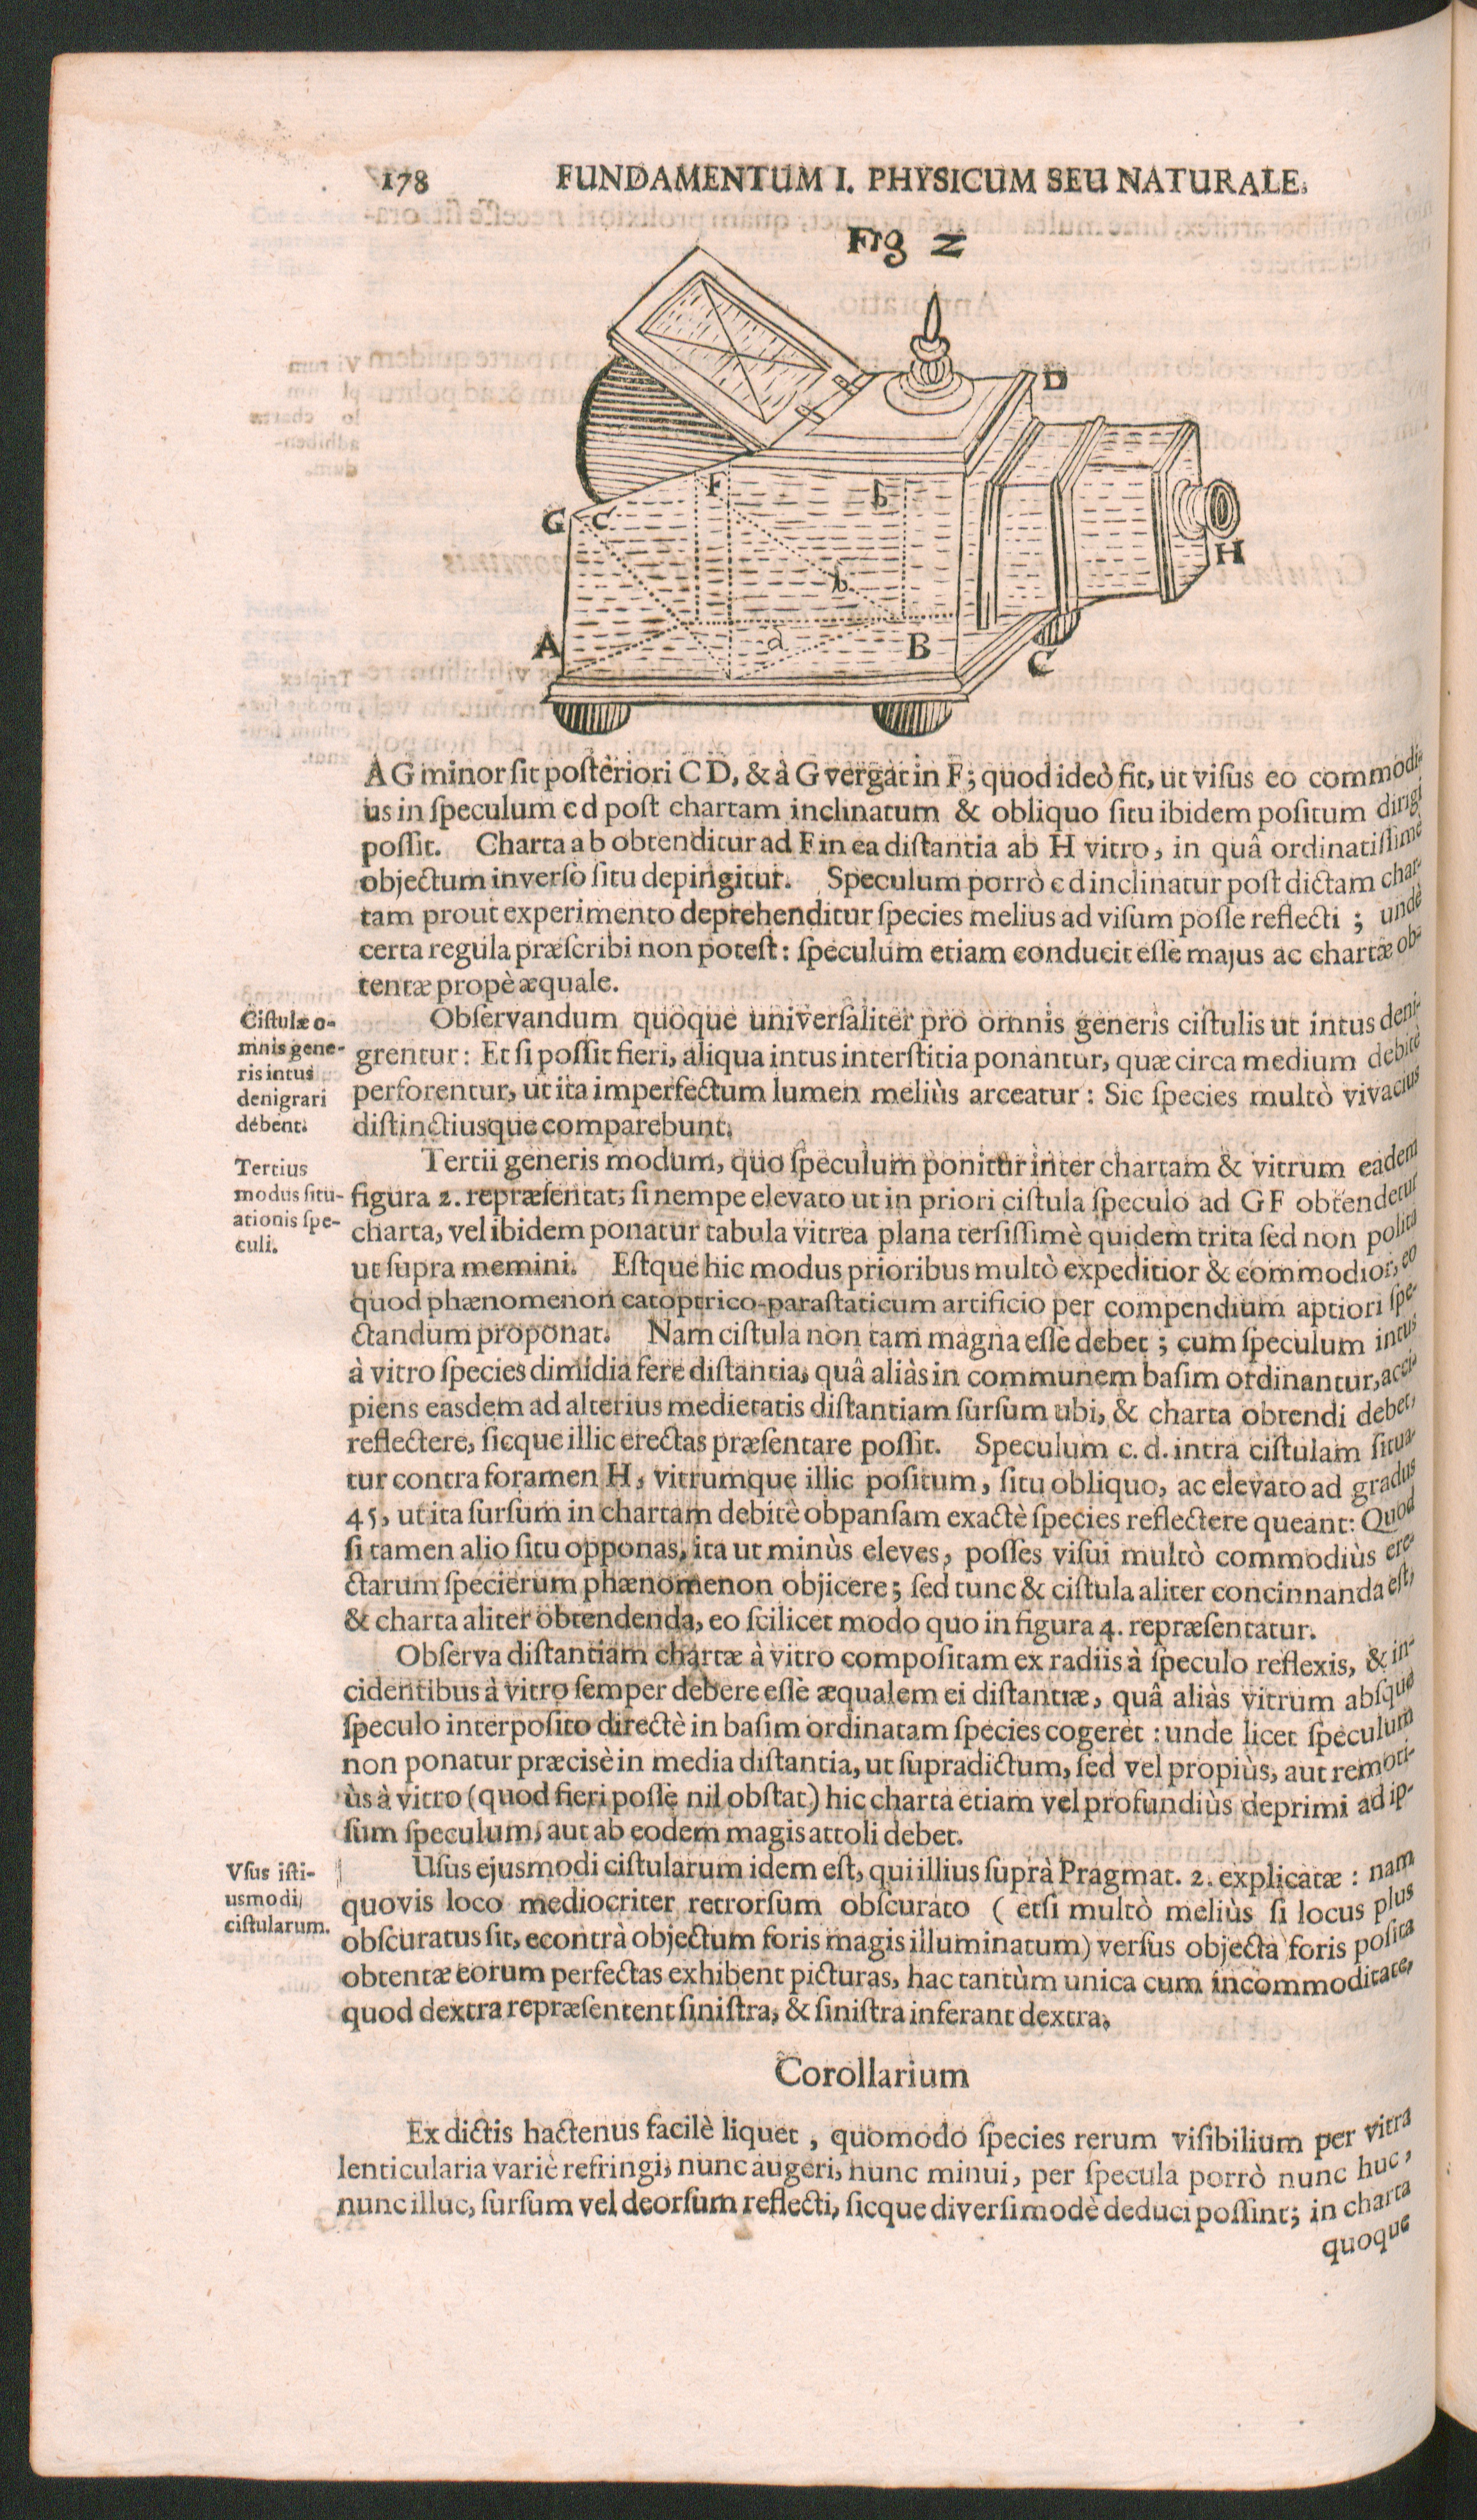 178 FUNDAMENTUM I. PHYSICUM SEU NATURALE.
Fig 2
D
F
b
G
c
H
b
A
d
B
C
AG minor ſit poſteriori C D, & à G vergat in F; quod ideò fit, ut viſus eo commodi-
us in ſpeculum c d poſt chartam inclinatum & obliquo ſitu ibidem poſitum dirigi
poſſit. Charta a b obtenditur ad F in ea diſtantia ab H vitro, in quâ ordinatiſſimè
objectum inverſò ſitu depingitur. Speculum porrò c d inclinatur poſt dictam char-
tam prout experimento deprehenditur ſpecies melius ad viſum poſſe reflecti; undè
certa regula præſcribi non poteſt: ſpeculum etiam conducit eſſe majus ac chartæ ob-
tentæ propè æquale.
Ciſtulæ o-
mnis gene-
ris intus
denigrari
debent.
Obſervandum quoque univerſaliter pro omnis generis ciſtulis ut intus deni-
grentur: Et ſi poſſit fieri, aliqua intus interſtitia ponantur, quæ circa medium debitè
perforentur, ut ita imperfectum lumen meliùs arceatur: Sic ſpecies multò vivacius
diſtinctiusque comparebunt.
Tertius
modus ſitu-
ationis ſpe-
culi.
Tertii generis modum, quo ſpeculum ponitur inter chartam & vitrum eadem
figura 2. repræſentat; ſi nempe elevato ut in priori ciſtula ſpeculo ad GF obtendetur
charta, vel ibidem ponatur tabula vitrea plana terſiſſimè quidem trita ſed non polita
ut ſupra memini. Eſtque hic modus prioribus multò expeditior & commodior, eo
quod phænomenon catoptrico-paraſtaticum artificio per compendium aptiori ſpe-
ctandum proponat. Nam ciſtula non tam magna eſſe debet; cum ſpeculum intus
à vitro ſpecies dimidia fere diſtantia, quâ aliàs in communem baſim ordinantur, acci-
piens easdem ad alterius medietatis diſtantiam ſurſum ubi, & charta obtendi debet,
reflectere, ſicque illic erectas præſentare poſſit. Speculum c. d. intra ciſtulam ſitua-
tur contra foramen H, vitrumque illic poſitum, ſitu obliquo, ac elevato ad gradus
45, ut ita ſurſum in chartam debitè obpanſam exactè ſpecies reflectere queant: Quod
ſi tamen alio ſitu opponas, ita ut minùs eleves, poſſes viſui multò commodiùs ere-
ctarum ſpecierum phænomenon objicere; ſed tunc & ciſtula aliter concinnanda eſt,
& charta aliter obtendenda, eo ſcilicet modo quo in figura 4. repræſentatur.
Obſerva diſtantiam chartæ à vitro compoſitam ex radiis à ſpeculo reflexis, & in-
cidentibus à vitro ſemper debere eſſe æqualem ei diſtantiæ, quâ aliàs vitrum absque
ſpeculo interpoſito directè in baſim ordinatam ſpecies cogeret: unde licet ſpeculum
non ponatur præcisè in media diſtantia, ut ſupradictum, ſed vel propiùs, aut remoti-
ùs à vitro (quod fieri poſſe nil obſtat) hic charta etiam vel profundiùs deprimi ad ip-
ſum ſpeculum, aut ab eodem magis attoli debet.
Vſus iſti-
usmodi
ciſtularum.
Uſus ejusmodi ciſtularum idem eſt, qui illius ſuprà Pragmat. 2. explicatæ: nam
quovis loco mediocriter retrorſum obſcurato ( etſi multò meliùs ſi locus plus
obſcuratus ſit, econtrà objectum foris magis illuminatum) verſus objecta foris poſita
obtentæ eorum perfectas exhibent picturas, hac tantùm unica cum incommoditate,
quod dextra repræſentent ſiniſtra, & ſiniſtra inferant dextra.
Corollarium
Ex dictis hactenus facilè liquet, quomodo ſpecies rerum viſibilium per vitra
lenticularia variè refringi, nunc augeri, nunc minui, per ſpecula porrò nunc huc,
nunc illuc, ſurſum vel deorſum reflecti, ſicque diverſimodè deduci poſſint; in charta
quoque